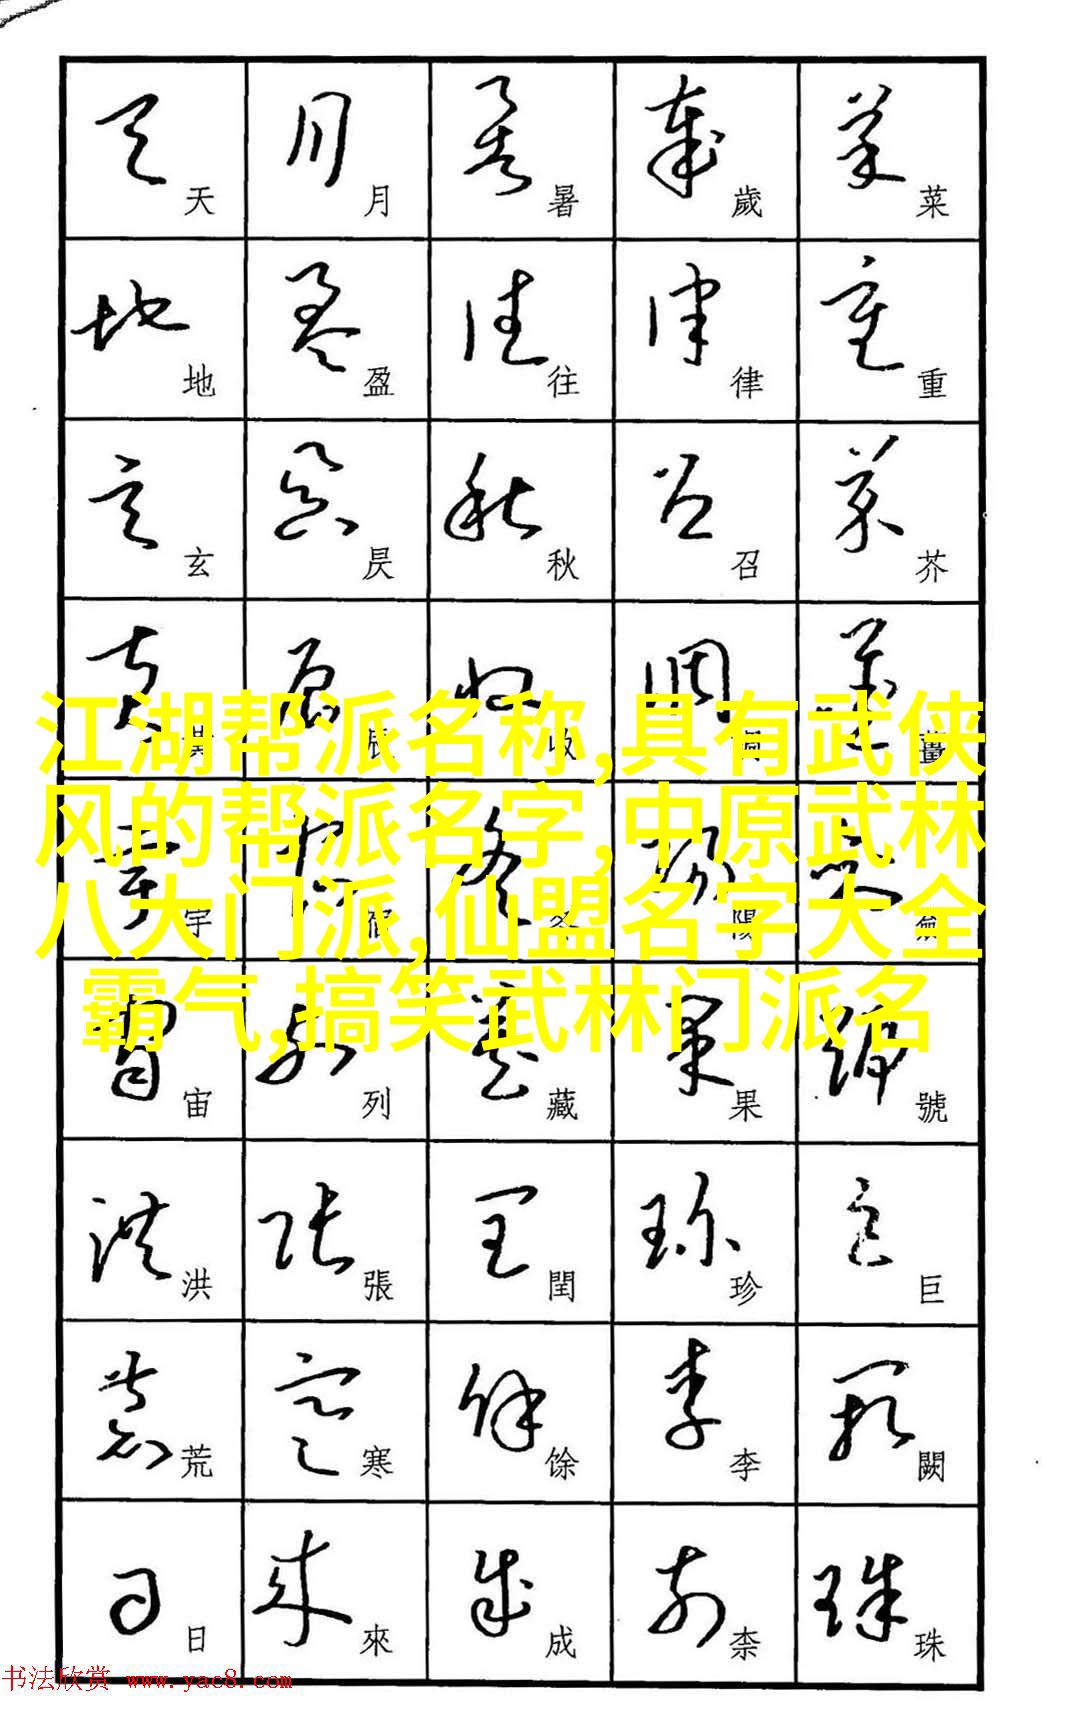 天 月 暑 歲 菜
地 盈 往 律 重
玄 昃 秋 召 芥
辰 收 薑
江湖帮派名称,具有武侠
风的帮派名字,中原武林
宇 宿 冬 陽
八大门派,仙盟名字大全
霸气,搞笑武林门派名
宙 列 藏 果 號
洪 張 閏 珍 巨
荒 寒 馀 李 闕
日 來 成 柰 珠
书法欣赏 www.yac8.com